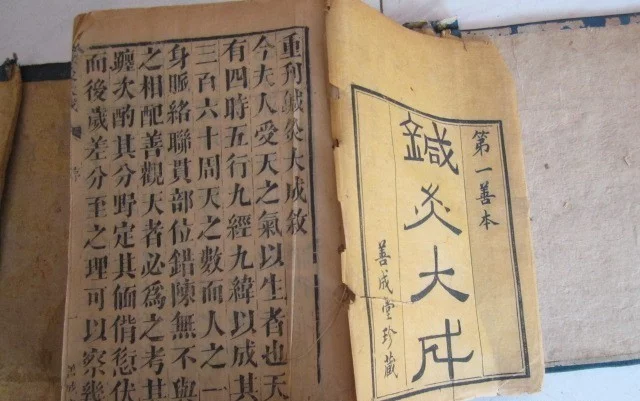 第一善本
鍼灸大成
善成堂珍藏
重刋鍼灸大成敘
今夫人受天之氣以生者也天
有四時五行九經九緯以成其
三百六十周天之數而人之一
身脈絡聯貫部位錯陳無不與
之相配善觀天者必爲之考其
躔次酌其分野定其愆伏
而後歲差分至之理可以察幾